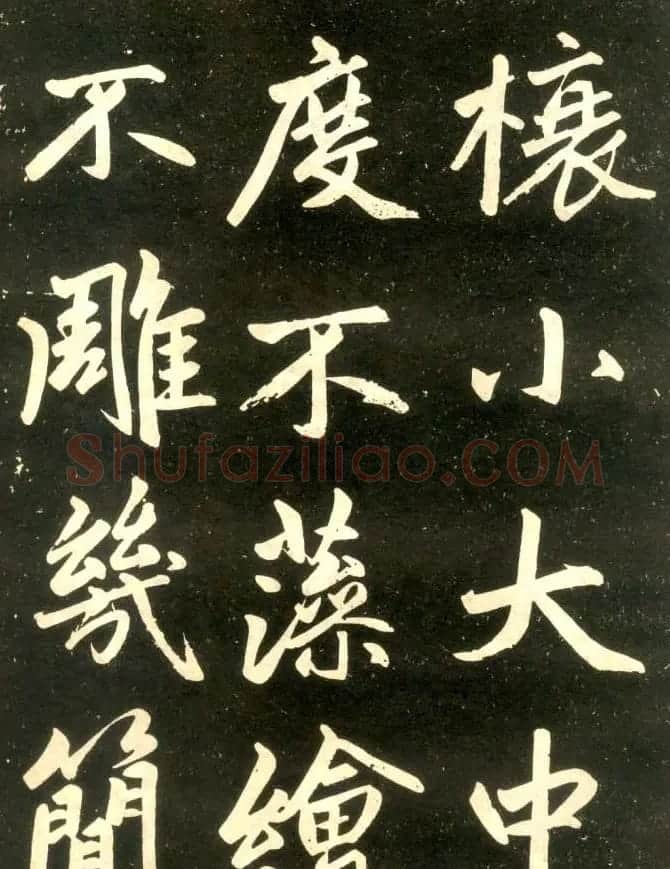 榱小大中
度不藻繪
不雕幾簡
Shufaziliao.COM